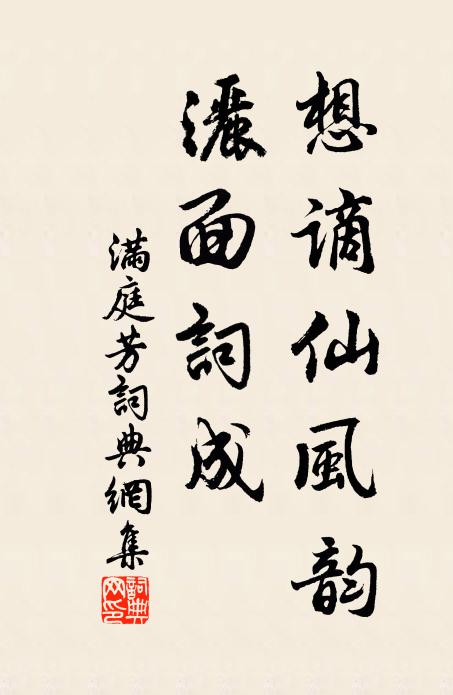 想謫仙風韵
灑面詞成
滿庭芳詞典網集
詞典
网印